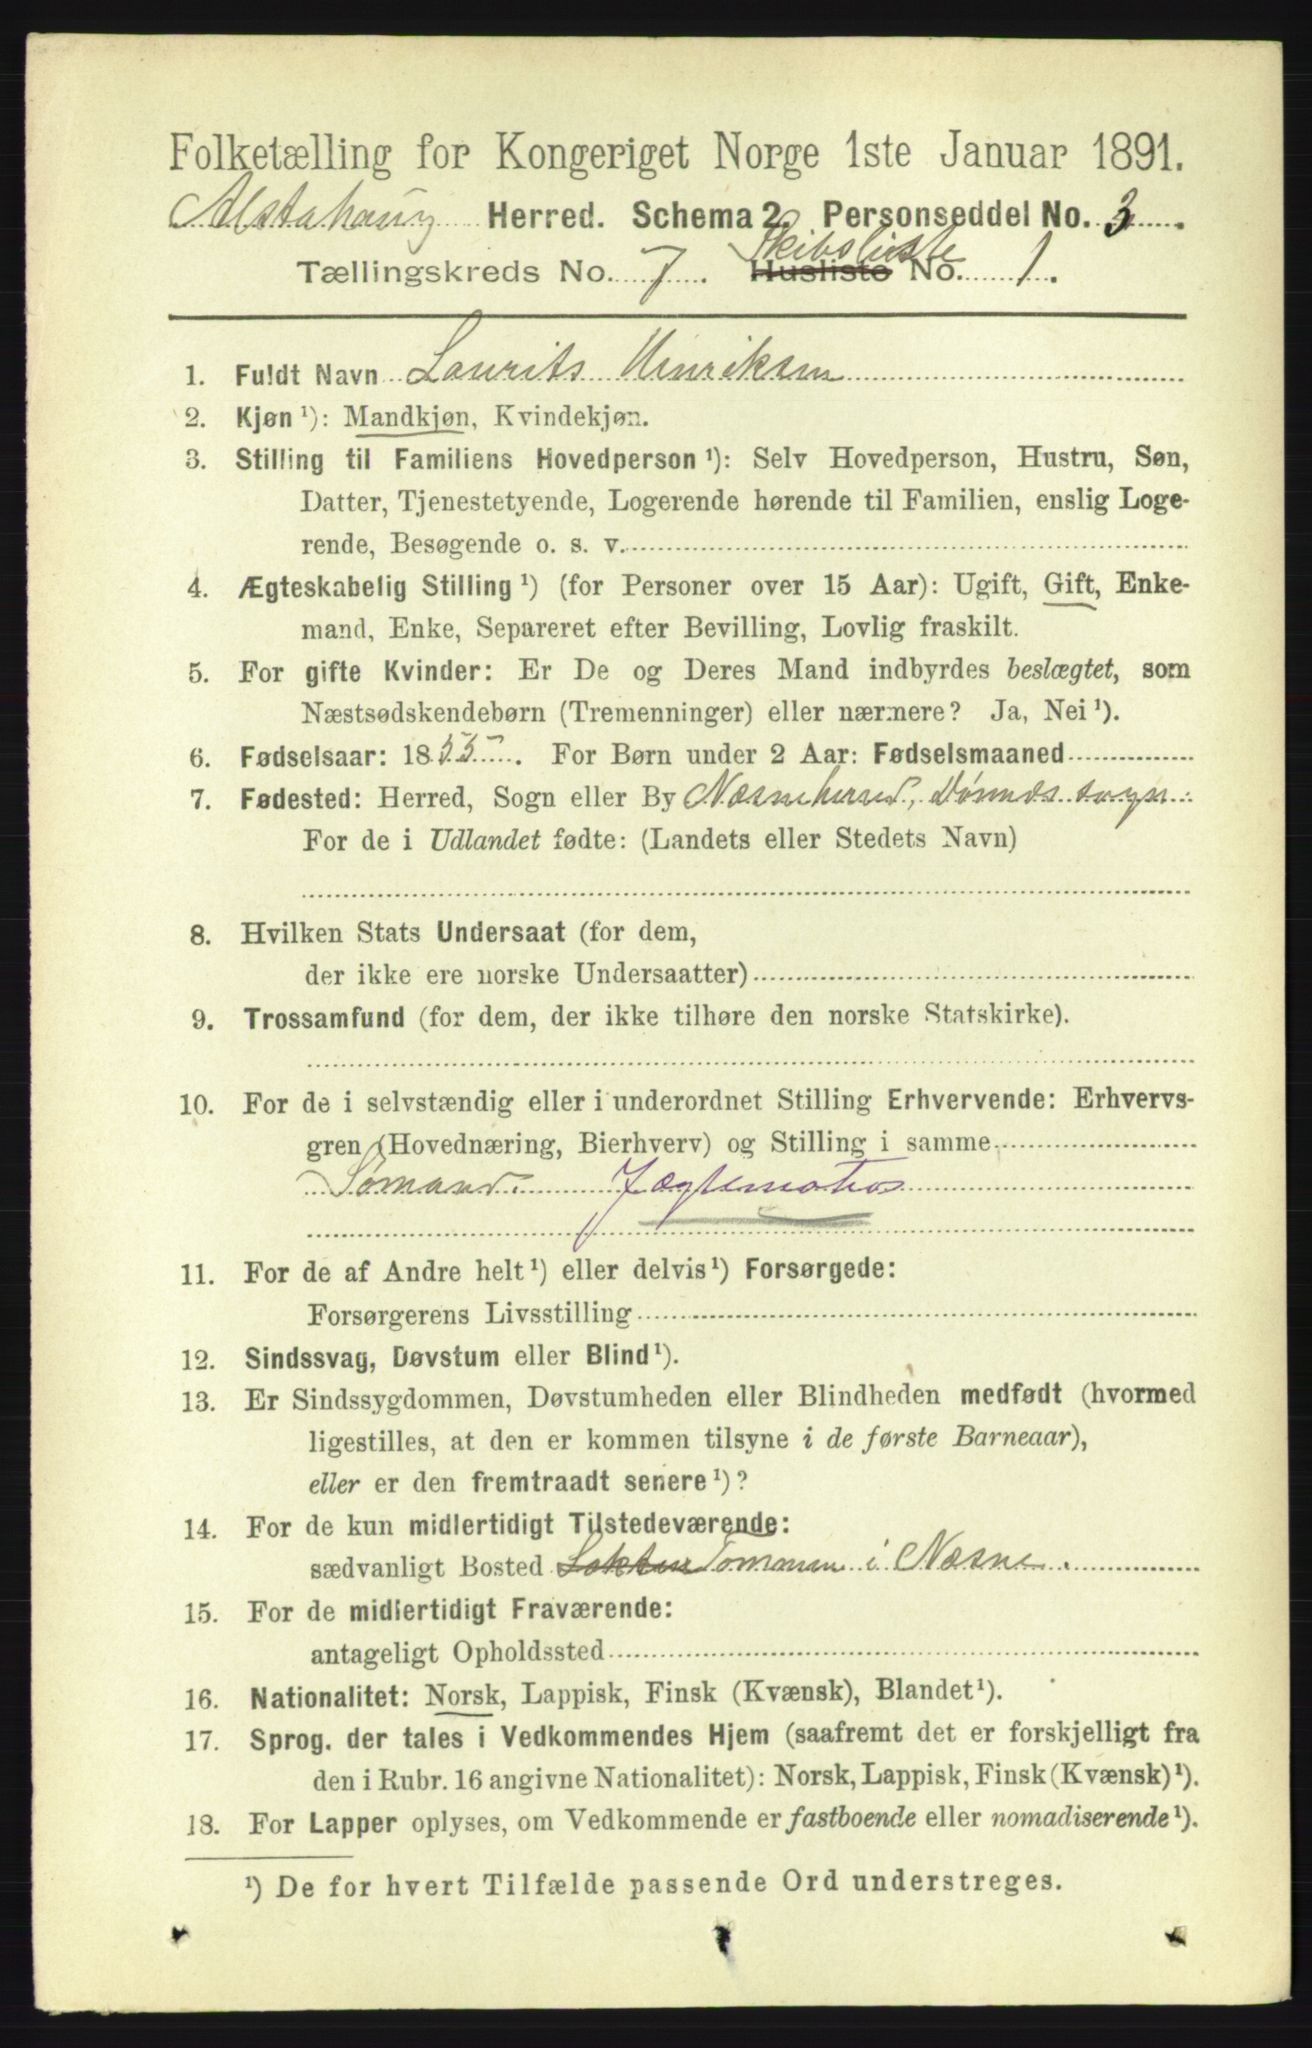 Folketælling for Kongeriget Norge 1ste Januar 1891.
Alstahaug Herred. Schema 2. Personseddel No. 3.
Skibsliste
Tællingskreds No. 7. Husliste No. 1.
1. Fuldt Navn Laurits Henriksen
2. Kjøn ¹): Mandkjøn, Kvindekjøn.
3. Stilling til Familiens Hovedperson ¹): Selv Hovedperson, Hustru, Søn,
Datter, Tjenestetyende, Logerende hørende til Familien, enslig Loge-
rende, Besøgende o. s. v.
4. Ægteskabelig Stilling ¹) (for Personer over 15 Aar): Ugift, Gift, Enke-
mand, Enke, Separeret efter Bevilling, Lovlig fraskilt.
5. For gifte Kvinder: Er De og Deres Mand indbyrdes beslægtet, som
Næstsødskendebørn (Tremenninger) eller nærmere? Ja, Nei ¹).
6. Fødselsaar: 1855. For Børn under 2 Aar: Fødselsmaaned
7. Fødested: Herred, Sogn eller By Næsne herred, Dønnes sogn.
For de i Udlandet fødte: (Landets eller Stedets Navn)
8. Hvilken Stats Undersaat (for dem,
der ikke ere norske Undersaatter)
9. Trossamfund (for dem, der ikke tilhøre den norske Statskirke).
10. For de i selvstændig eller i underordnet Stilling Erhvervende: Erhvervs-
gren (Hovednæring, Bierhverv) og Stilling i samme
Sømand. Jægtematros
11. For de af Andre helt ¹) eller delvis ¹) Forsørgede:
Forsørgerens Livsstilling
12. Sindssvag, Døvstum eller Blind ¹).
13. Er Sindssygdommen, Døvstumheden eller Blindheden medfødt (hvormed
ligestilles, at den er kommen tilsyne i de første Barneaar),
eller er den fremtraadt senere ¹)?
14. For de kun midlertidigt Tilstedeværende:
sædvanligt Bosted Tommen i Næsne.
15. For de midlertidigt Fraværende:
antageligt Opholdssted
16. Nationalitet: Norsk, Lappisk, Finsk (Kvænsk), Blandet ¹).
17. Sprog, der tales i Vedkommendes Hjem (saafremt det er forskjelligt fra
den i Rubr. 16 angivne Nationalitet): Norsk, Lappisk, Finsk (Kvænsk) ¹).
18. For Lapper oplyses, om Vedkommende er fastboende eller nomadiserende ¹).
¹) De for hvert Tilfælde passende Ord understreges.